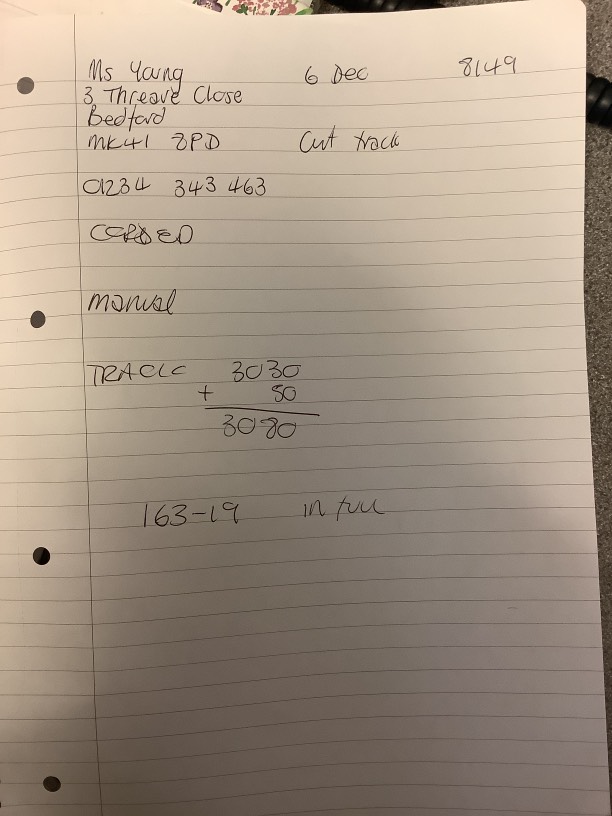 Ms Young 6 Dec 8149
3 Threave Close
Bedford
MK41 8PD Cut track
01234 343 463
CORDED
manual
TRACK 3030
+ 50
3080
163-19 in full